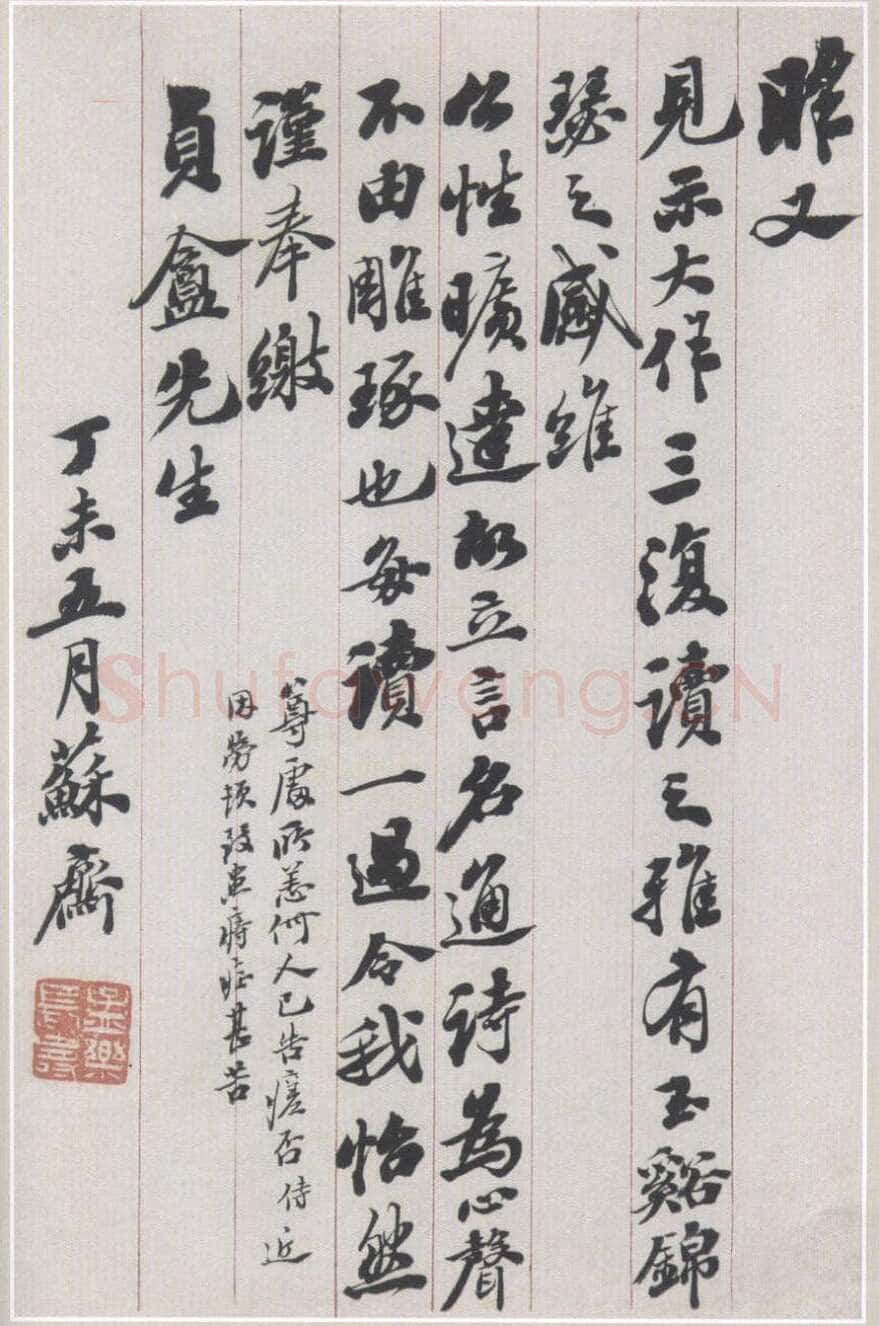 昨又
見示大作三復讀之雅有玉谿錦
瑟之感維
公性曠達故立言名通詩為心聲
不由雕琢也每讀一過令我怡然
謹奉繳
尊處所恙何人已告瘥否侍近
因勞頓致患痔症甚苦
貞盦先生
丁未五月蘇齋
長壽
Shufawang.CN